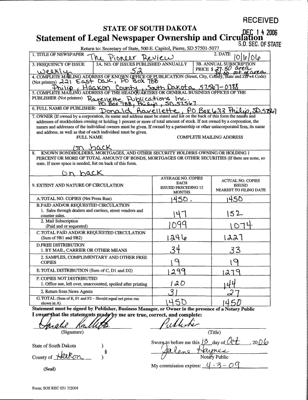 RECEIVED
DEC 14 2006
S.D. SEC. OF STATE
STATE OF SOUTH DAKOTA
Statement of Legal Newspaper Ownership and Circulation
Return to: Secretary of State, 500 E. Capitol, Pierre, SD 57501-5077
1. TITLE OF NEWSPAPER The Pioneer Review
2. DATE 10/6/06
3. FREQUENCY OF ISSUE Weekly
3A. NO. OF ISSUES PUBLISHED ANNUALLY 52
3B. ANNUAL SUBSCRIPTION PRICE
4. COMPLETE MAILING ADDRESS OF KNOWN OFFICE OF PUBLICATION (Street, City, County, State and ZIP+4 Code)
(Not printers) 221 East Oak, PO Box 788
Philip, Haakon County, South Dakota 57567-0788
5. COMPLETE MAILING ADDRESS OF THE HEADQUARTERS OF GENERAL BUSINESS OFFICES OF THE
PUBLISHER (Not printers) Ravellette Publications
PO Box 788, Philip, SD 57567
6. FULL NAME OF PUBLISHER: Donald Ravellette, PO Box 633 Philip, SD 57567
7. OWNER (If owned by a corporation, its name and address must be stated and also on the back of this form the names and
addresses of stockholders owning or holding 1 percent or more of total amount of stock. If not owned by a corporation, the
names and addresses of the individual owners must be given. If owned by a partnership or other unincorporated firm, its name
and address, as well as that of each individual must be given.
FULL NAME COMPLETE MAILING ADDRESS
on back
8. KNOWN BONDHOLDERS, MORTGAGES, AND OTHER SECURITY HOLDERS OWNING OR HOLDING 1
PERCENT OR MORE OF TOTAL AMOUNT OF BONDS, MORTGAGES OR OTHER SECURITIES
on back
9. EXTENT AND NATURE OF CIRCULATION
AVERAGE NO. COPIES EACH ISSUED PRECEDING 12 MONTHS
ACTUAL NO. COPIES ISSUED NEAREST TO FILING DATE
A. TOTAL NO. COPIES (Net Press Run) 1450 1450
B. PAID AND/OR REQUESTED CIRCULATION
1. Sales through dealers and carriers, street vendors and counter sales. 147 152
2. Mail Subscription (Paid and or requested) 1099 1074
C. TOTAL PAID AND/OR REQUESTED CIRCULATION (Sum of 9B1 and 9B2) 1246 1227
D. FREE DISTRIBUTION
1. BY MAIL, CARRIER OR OTHER MEANS 34 33
2. SAMPLES, COMPLIMENTARY AND OTHER FREE COPIES 19 19
E. TOTAL DISTRIBUTION (Sum of C, D1 and D2) 1299 1279
F. COPIES NOT DISTRIBUTED
1. Office use, left over, unaccounted, spoiled after printing 120 144
2. Return from News Agents 31 27
G. TOTAL (Sum of E, F1 and F2 - Should equal net press run shown in A) 1450 1450
Statement must be signed by Publisher, Business Manager, or Owner in the presence of a Notary Public
I swear that the statements made by me are true, correct, and complete:
Publisher
(Signature) (Title)
State of South Dakota )
County of Haakon )
Sworn to before me this 13 day of Oct 2006
Notary Public
(Seal) My commission expires: 4-3-09
Form: SOS REC 051 7/2004